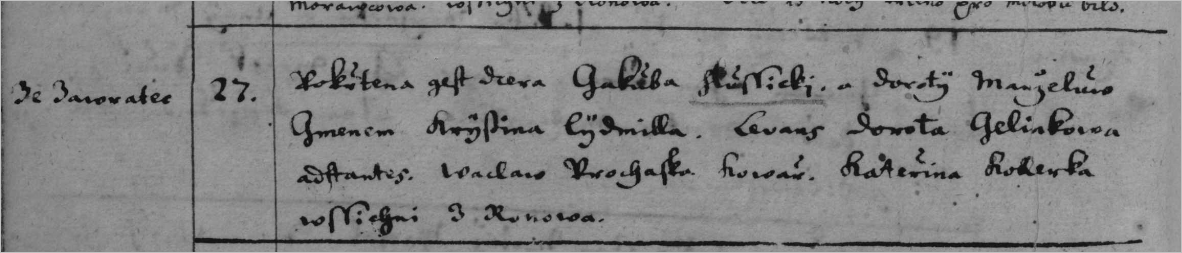 Morawcowa. wssickni z Ronowa.
Ze Zawratec 27. Pokrztena gest dcera Gakuba Hussicki. a doroty Manzeluw
Gmenem Krystina Lydmilla. Levans dorota Gelinkowa
adstantes. Waclaw Prochaska kowarz. Katerzina Kolerka
wssickni z Ronowa.